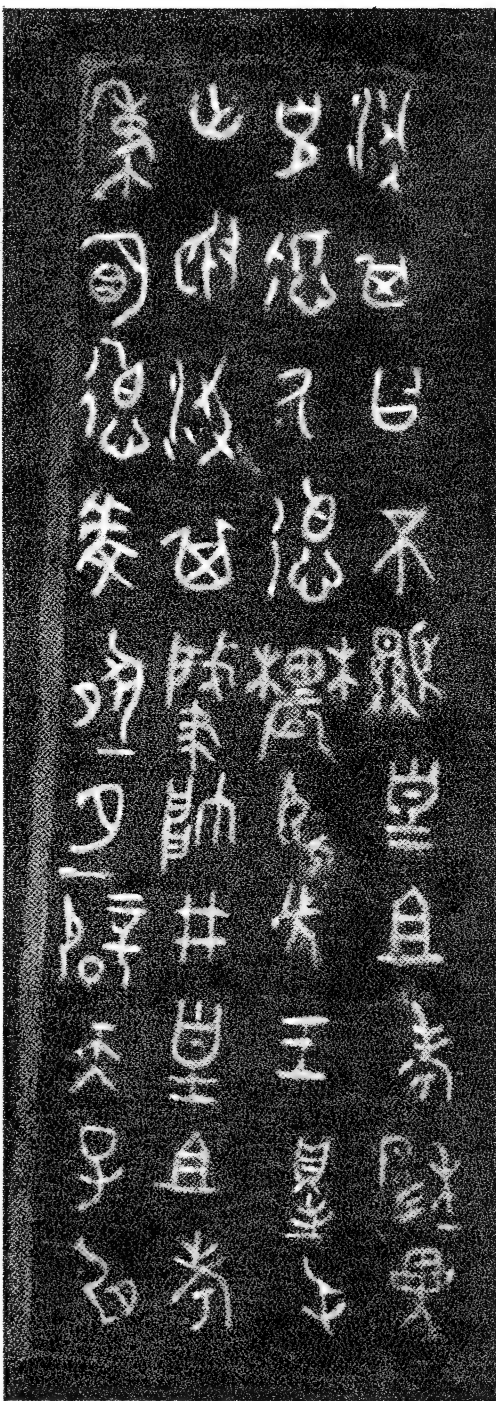 汈其曰不顯皇且考穆=異
克悊氒德農臣先王得屯
亡敃汈其肇帥井皇且考
秉明德虔夙夕辟天子肩